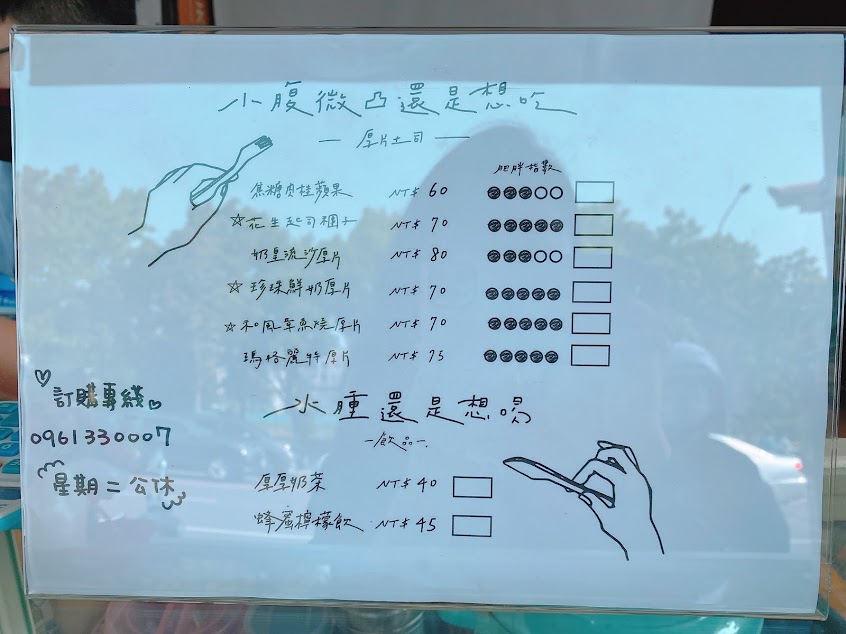 小腹微凸還是想吃
— 厚片土司 —
肥胖指數
焦糖肉桂蘋果 NT$ 60
☆花生起司麻糬 NT$ 70
奶皇流沙厚片 NT$ 80
☆珍珠鮮奶厚片 NT$ 70
☆和風章魚燒厚片 NT$ 70
瑪格麗特厚片 NT$ 75
訂購專線
0961330007
星期二公休
水腫還是想喝
—飲品—
厚厚奶茶 NT$ 40
蜂蜜檸檬飲 NT$ 45